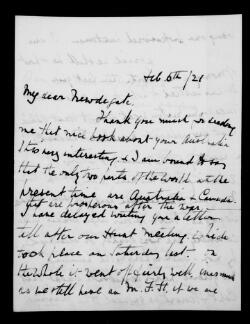 Feb 6th/21
My dear Newdegate.
Thank you much for sending
me that nice book about your Australia
It is very interesting, & I am bound to say
that the only two parts of the world at the
present time are Australia & Canada
that are prosperous after the war.
I have delayed writing you a letter
till after our Hount meeting, which
took place on Saturday last. On
the whole it went off fairly well, inasmuch
as we still have an M.F.H, if we are